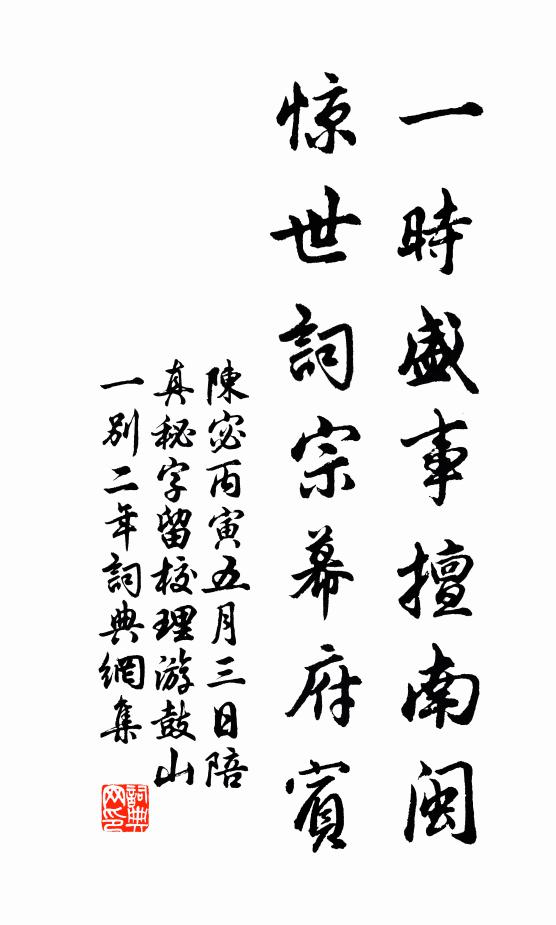 一時盛事擅南閩
惊世詞宗幕府賓
陳宓丙寅五月三日陪
真秘字留校理游鼓山
一別二年詞典網集
詞典网印